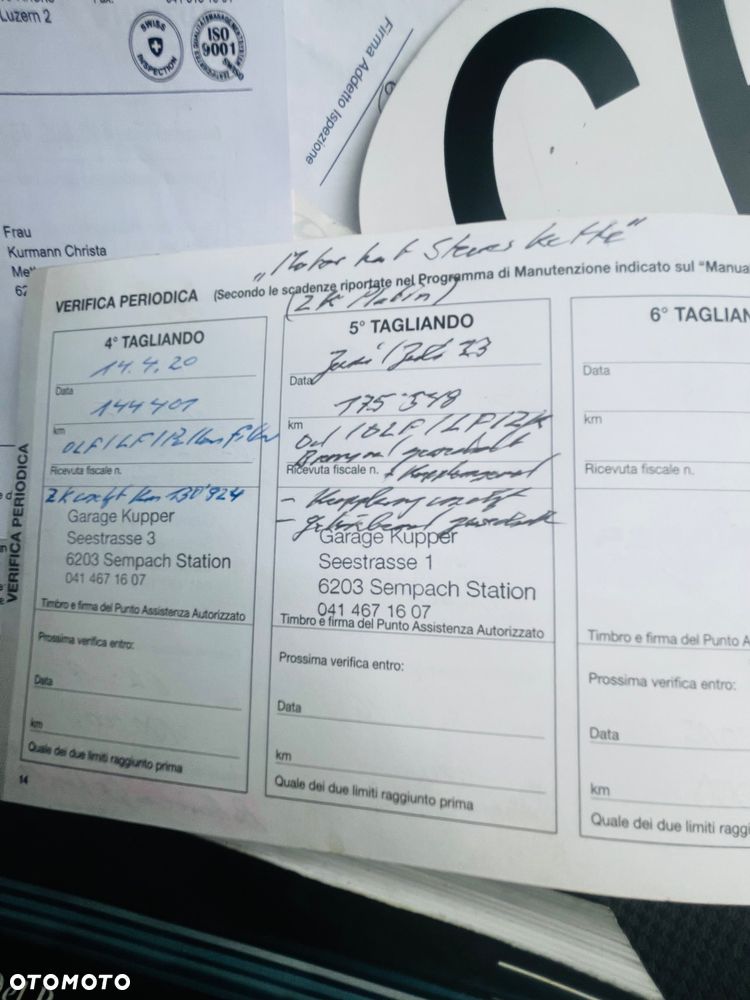 Luzern 2
SWISS
INSPECTION
ISO
9001
Firma Addetto Ispezione
C
Frau
Kurmann Christa
62
„Motor hat Steuerkette"
VERIFICA PERIODICA (Secondo le scadenze riportate nel Programma di Manutenzione indicato sul "Manua
4° TAGLIANDO
14.4.20
Data
144401
km
OLF/LF/Pollenfilter
Ricevuta fiscale n.
130'924
Garage Kupper
Seestrasse 3
6203 Sempach Station
041 467 16 07
Timbro e firma del Punto Assistenza Autorizzato
Prossima verifica entro:
Data
km
Quale dei due limiti raggiunto prima
14
VERIFICA PERIODICA
5° TAGLIANDO
Juni/Juli 23
Data
175'548
km
Oel/OLF/LF/ZK
Ricevuta fiscale n.
- Kupplung ersetzt
Garage Kupper
Seestrasse 1
6203 Sempach Station
041 467 16 07
Timbro e firma del Punto Assistenza Autorizzato
Prossima verifica entro:
Data
km
Quale dei due limiti raggiunto prima
6° TAGLIAN
Data
km
Ricevuta fiscale n.
Timbro e firma del Punto A
Prossima verifica entro:
Data
km
Quale dei due limiti raggi
OTOMOTO